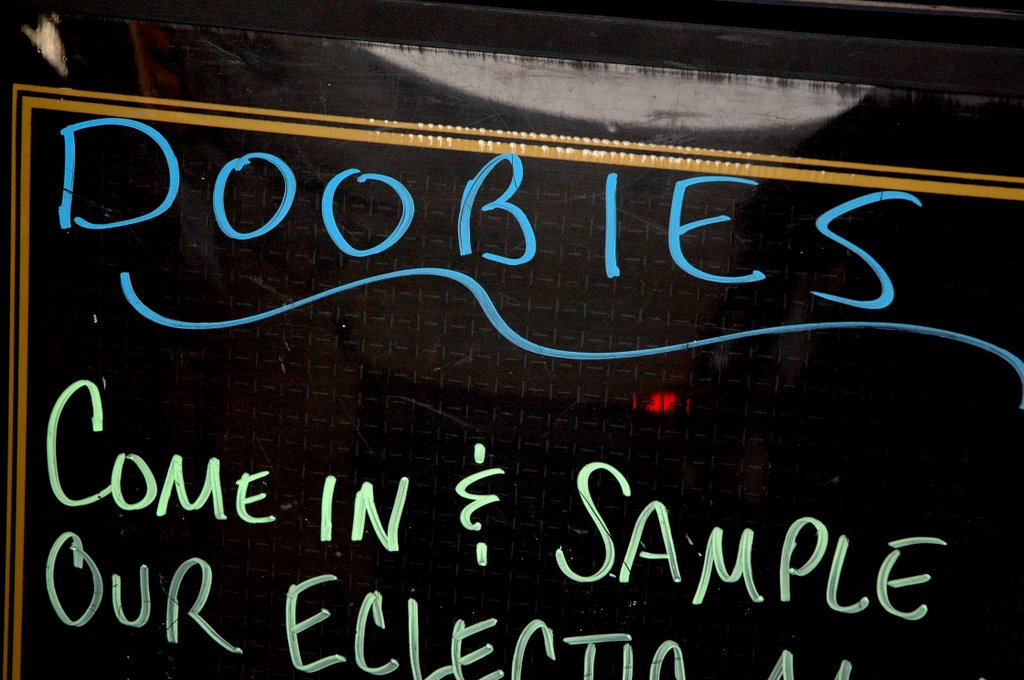 DOOBIES
COME IN & SAMPLE
OUR ECLECTIC